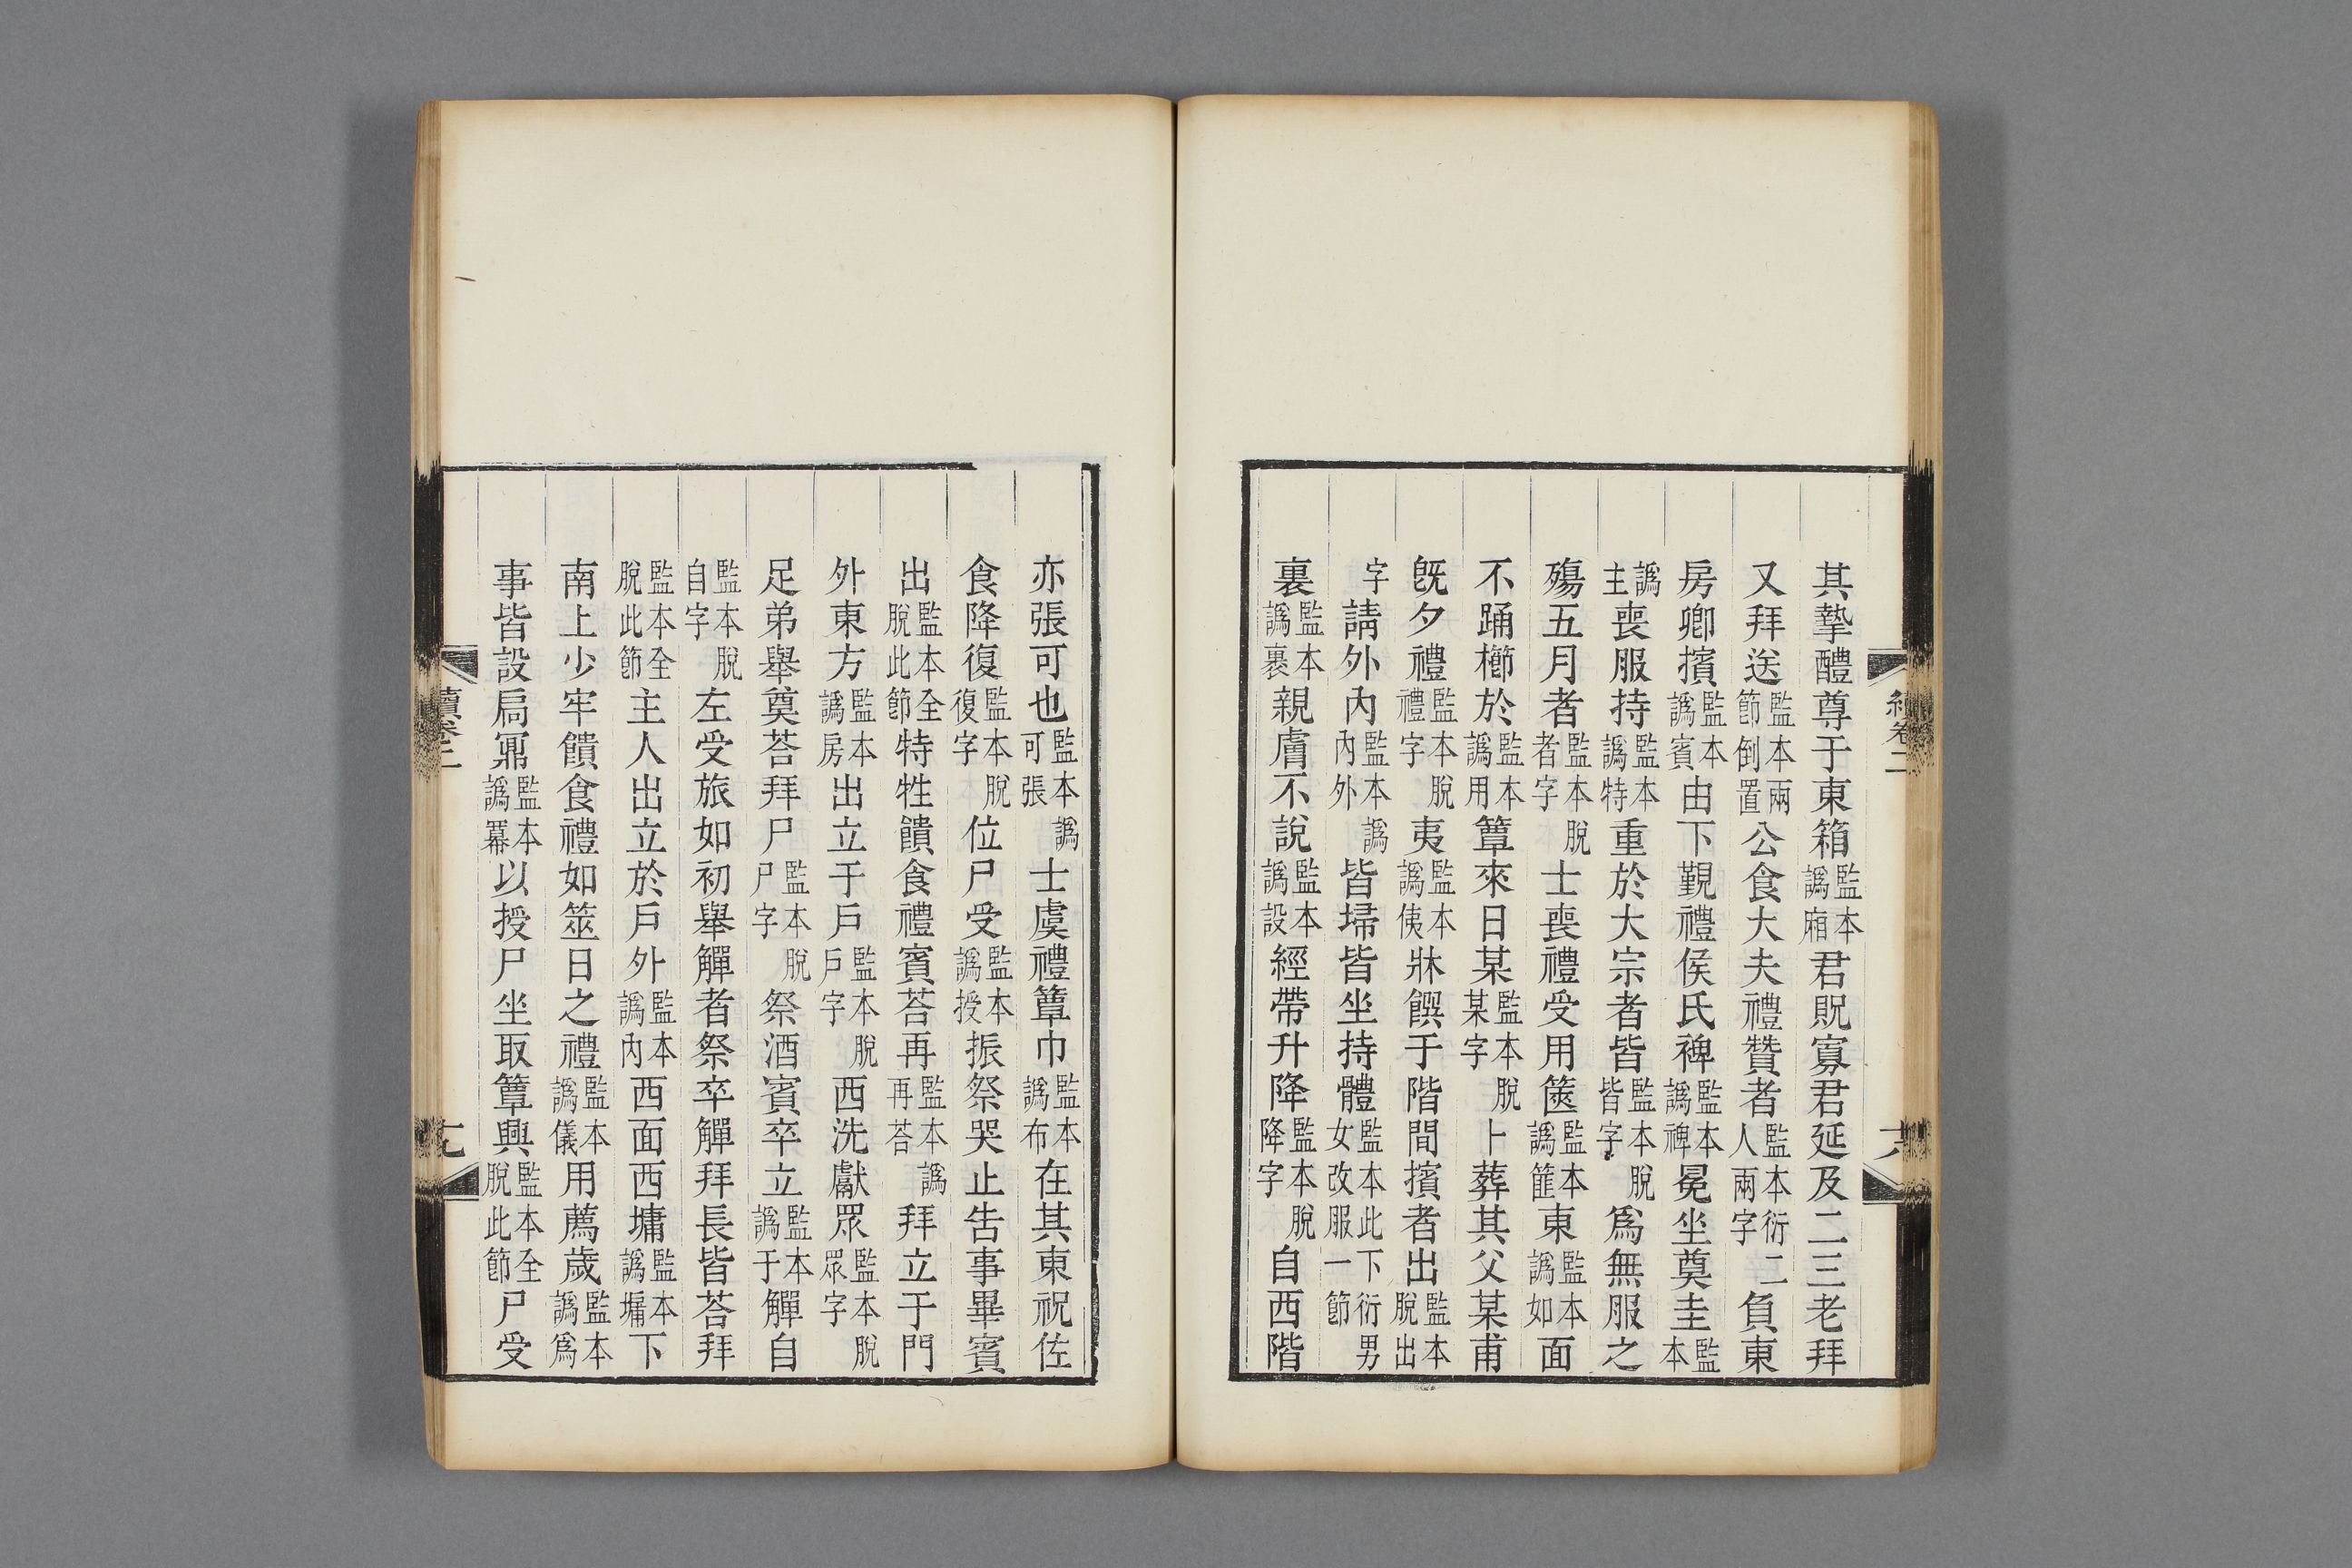 其摯醴尊于東箱監本譌廂君貺寡君延及二三老拜
又拜送監本兩節倒置公食大夫禮贊者監本衍二人兩字負東
房卿擯監本譌賓由下覲禮侯氏裨監本譌禆冕坐奠圭監本
譌主喪服持監本譌特重於大宗者皆監本脫皆字爲無服之
殤五月者監本脫者字士喪禮受用篋監本譌篚東監本譌如面
不踊櫛於監本譌用簞來日某監本脫某字卜葬其父某甫
旣夕禮監本脫禮字夷監本譌侇牀饌于階間擯者出監本脫出
字請外內監本譌內外皆埽皆坐持體監本此下衍男女改服一節
裏監本譌裹親膚不說監本譌設絰帶升降監本脫降字自西階
亦張可也監本譌可張士虞禮簞巾監本譌布在其東祝佐
食降復監本脫復字位尸受監本譌授振祭哭止告事畢賓
出監本全脫此節特牲饋食禮賓荅再監本譌再荅拜立于門
外東方監本譌房出立于戶監本脫戶字西洗獻眾監本脫眾字
足弟舉奠荅拜尸監本脫尸字祭酒賓卒立監本譌于觶自
監本脫自字左受旅如初舉觶者祭卒觶拜長皆荅拜
監本全脫此節主人出立於戶外監本譌內西面西墉監本譌墉下
南上少牢饋食禮如筮日之禮監本譌儀用薦歲監本譌爲
事皆設扃鼏監本譌冪以授尸坐取簞興監本全脫此節尸受
續卷二
十六
續卷二
十七